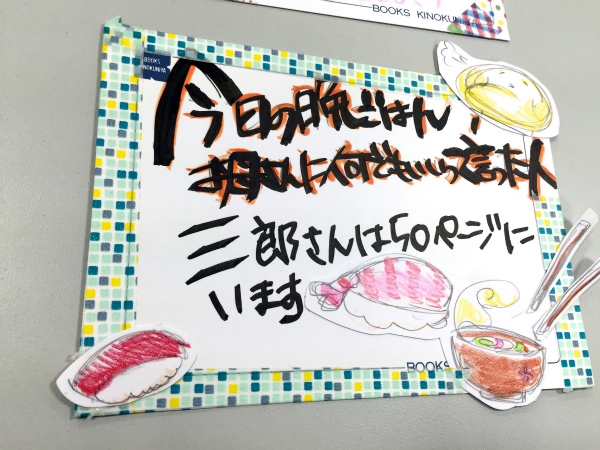 BOOKS KINOKUNIYA
BOOKS
KINOKUNIYA
今日の晩ごはん、
お母さんに何でもいいって言った人
三郎さんは50ページに
います
BOOKS